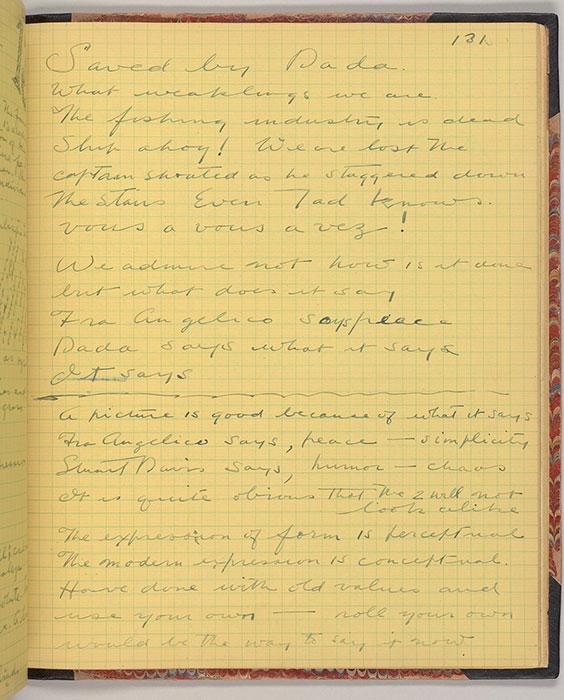 131
Saved by Dada.
What weaklings we are
The fishing industry is dead
Ship ahoy! We are lost the
captain shouted as he staggered down
the stairs Even Tad knows.
vous a vous a vez!
We admire not how is it done
but what does it say
Fra Angelico says peace
Dada says what it says
It says
A picture is good because of what it says
Fra Angelico says, peace — simplicity
Stuart Davis says, humor — chaos
It is quite obvious that the 2 will not
look alike
The expression of form is perceptual
The modern expression is conceptual.
Have done with old values and
use your own — roll your own
would be the way to say it now